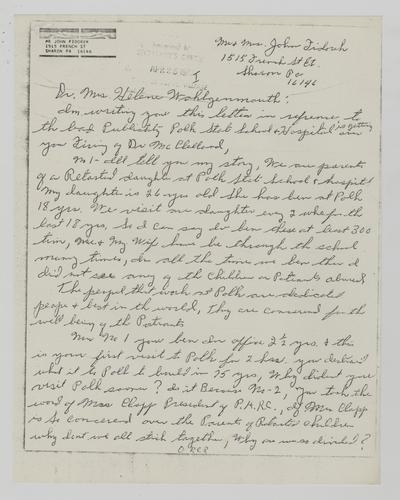 MR JOHN FIDOREK
1515 FRENCH ST
SHARON PA 16146
Mr & Mrs. John Fidorek
1515 French St Ext.
Sharon Pa
16146
I
Dr. Mrs Helene Wohlgenmouth:
Am writing you this letter in refrence to
the bad Publicity Polk State School & Hospital is getting over
you Firing of Dr Mc Clelland,
No 1- all tell you my story, We are parents
of a Retarted daughter at Polk State School & hospital
my daughter is 26 yrs old She has ben at Polk
18 yrs. We visit our daughter every 2 wks for the
last 18 yrs, So I can say I've ben there at least 300
time, Me & My Wife have be through the school
many times, In all the time we ben there I
did not see any of the Children or Patients abused
The peopel that work at Polk are dedicated
people & best in the world, They are concerned for the
well being of the Patients
Mrs No 1 you ben in office 2 ½ yrs. & this
is your first visit to Polk for 2 hrs. you destried
what it to Polk to build in 75 yrs, Why didnt you
visit Polk sooner? Is it Because No-2, you took the
word of Mrs Clapp President of P.A.R.C., if Mrs Clapp
is So concerned over the Parents of Retarted Children
why dont we all stick together, Why are we so divided?
OVER